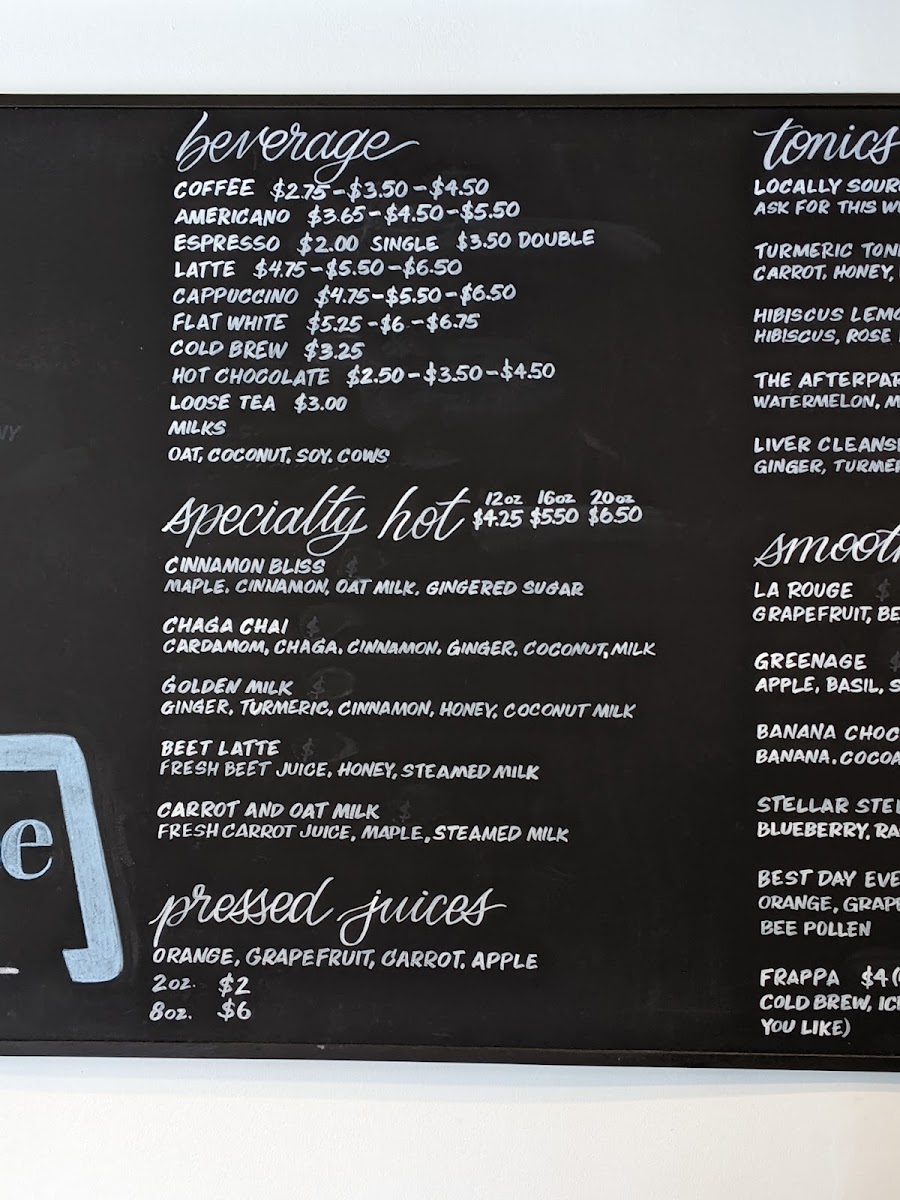 beverage
COFFEE $2.75-$3.50-$4.50
AMERICANO $3.65-$4.50-$5.50
ESPRESSO $2.00 SINGLE $3.50 DOUBLE
LATTE $4.75-$5.50-$6.50
CAPPUCCINO $4.75-$5.50-$6.50
FLAT WHITE $5.25-$6-$6.75
COLD BREW $3.25
HOT CHOCOLATE $2.50-$3.50-$4.50
LOOSE TEA $3.00
MILKS
OAT, COCONUT, SOY. COWS
specialty hot 12oz 16oz 20oz
$4.25 $5.50 $6.50
CINNAMON BLISS
MAPLE, CINNAMON, OAT MILK, GINGERED SUGAR
CHAGA CHAI
CARDAMOM, CHAGA, CINNAMON, GINGER, COCONUT, MILK
GOLDEN MILK
GINGER, TURMERIC, CINNAMON, HONEY, COCONUT MILK
BEET LATTE
FRESH BEET JUICE, HONEY, STEAMED MILK
CARROT AND OAT MILK
FRESH CARROT JUICE, MAPLE, STEAMED MILK
pressed juices
ORANGE, GRAPEFRUIT, CARROT, APPLE
2oz. $2
8oz. $6
e
tonics
LOCALLY SOUR
ASK FOR THIS W
TURMERIC TON
CARROT, HONEY,
HIBISCUS LEMO
HIBISCUS, ROSE
THE AFTERPAR
WATERMELON, M
LIVER CLEANS
GINGER, TURME
smoot
LA ROUGE
GRAPEFRUIT, BE
GREENAGE
APPLE, BASIL, S
BANANA CHOC
BANANA, COCOA
STELLAR STE
BLUEBERRY, RA
BEST DAY EVE
ORANGE, GRAP
BEE POLLEN
FRAPPA $4 (
COLD BREW, IC
YOU LIKE)